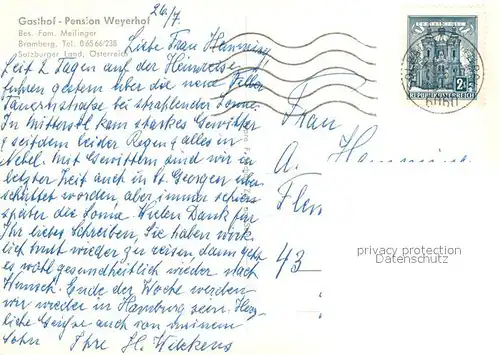 Gasthof - Pension Weyerhof
Bes. Fam. Meilinger
Bramberg, Tel. 0 65 66/238
Salzburger Land, Österreich
24/7.
Liebe Frau
Seit 2 Tagen auf der Heimreise
fuhren gestern über die neue Felber
Tauernstraße bei strahlender Sonne.
In Mittersill kam starkes Gewitter
u seitdem leider Regen u alles in
Nebel. Mit Gewittern sind wir in
letzter Zeit auch in St. Georgen über-
schüttet worden, aber immer schien
später die Sonne. Vielen Dank für
Ihr liebes Schreiben, Sie haben wirk-
lich Mut wieder zu reisen, dann geht
es wohl gesundheitlich wieder nach
Wunsch. Ende der Woche werden
wir wieder in Hamburg sein. Herz-
liche Grüße auch von meinem
Sohn Ihre H. Wilckens
Frau
A.
43
REPUBLIK ÖSTERREICH
privacy protection
AnsichtskartenCenter